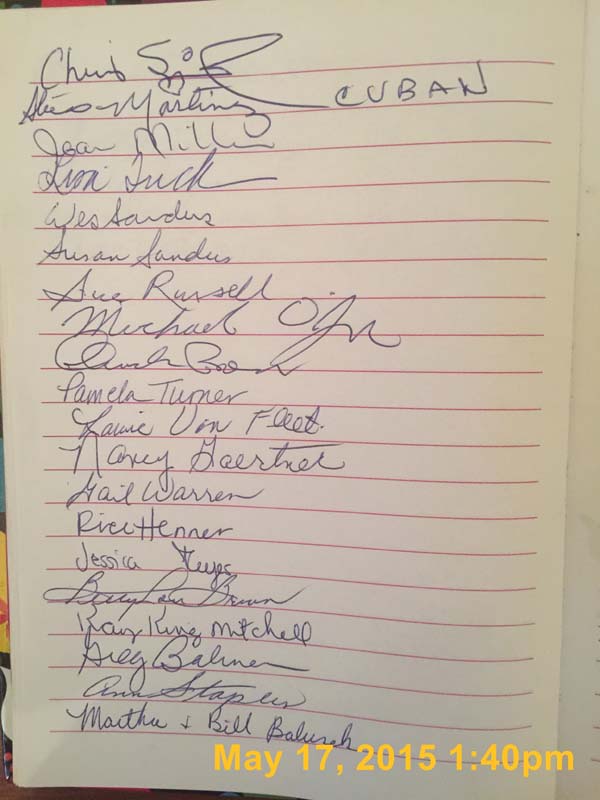 Chris
Martinez CUBAN
Joan Miller
Lisa Tuck
Wes Sanders
Susan Sanders
Sue Russell
Michael
Pamela Turner
Laurie Van Fleet.
Nancy Gaertner
Gail Warren
Henner
Jessica
Brown
Kay King Mitchell
Balmer
Ann Staples
Martha + Bill
May 17, 2015 1:40pm